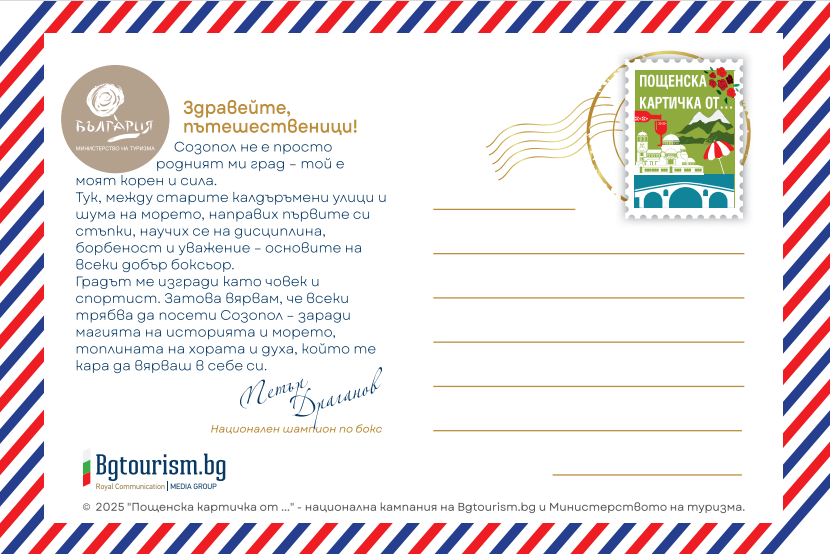 БЪЛГАРИЯ
МИНИСТЕРСТВО НА ТУРИЗМА
Здравейте,
пътешественици!
Созопол не е просто
родният ми град – той е
моят корен и сила.
Тук, между старите калдъръмени улици и
шума на морето, направих първите си
стъпки, научих се на дисциплина,
борбеност и уважение – основите на
всеки добър боксьор.
Градът ме изгради като човек и
спортист. Затова вярвам, че всеки
трябва да посети Созопол – заради
магията на историята и морето,
топлината на хората и духа, който те
кара да вярваш в себе си.
Петър
Драганов
Национален шампион по бокс
ПОЩЕНСКА
КАРТИЧКА ОТ...
Bgtourism.bg
Royal Communication | MEDIA GROUP
© 2025 "Пощенска картичка от ..." - национална кампания на Bgtourism.bg и Министерството на туризма.